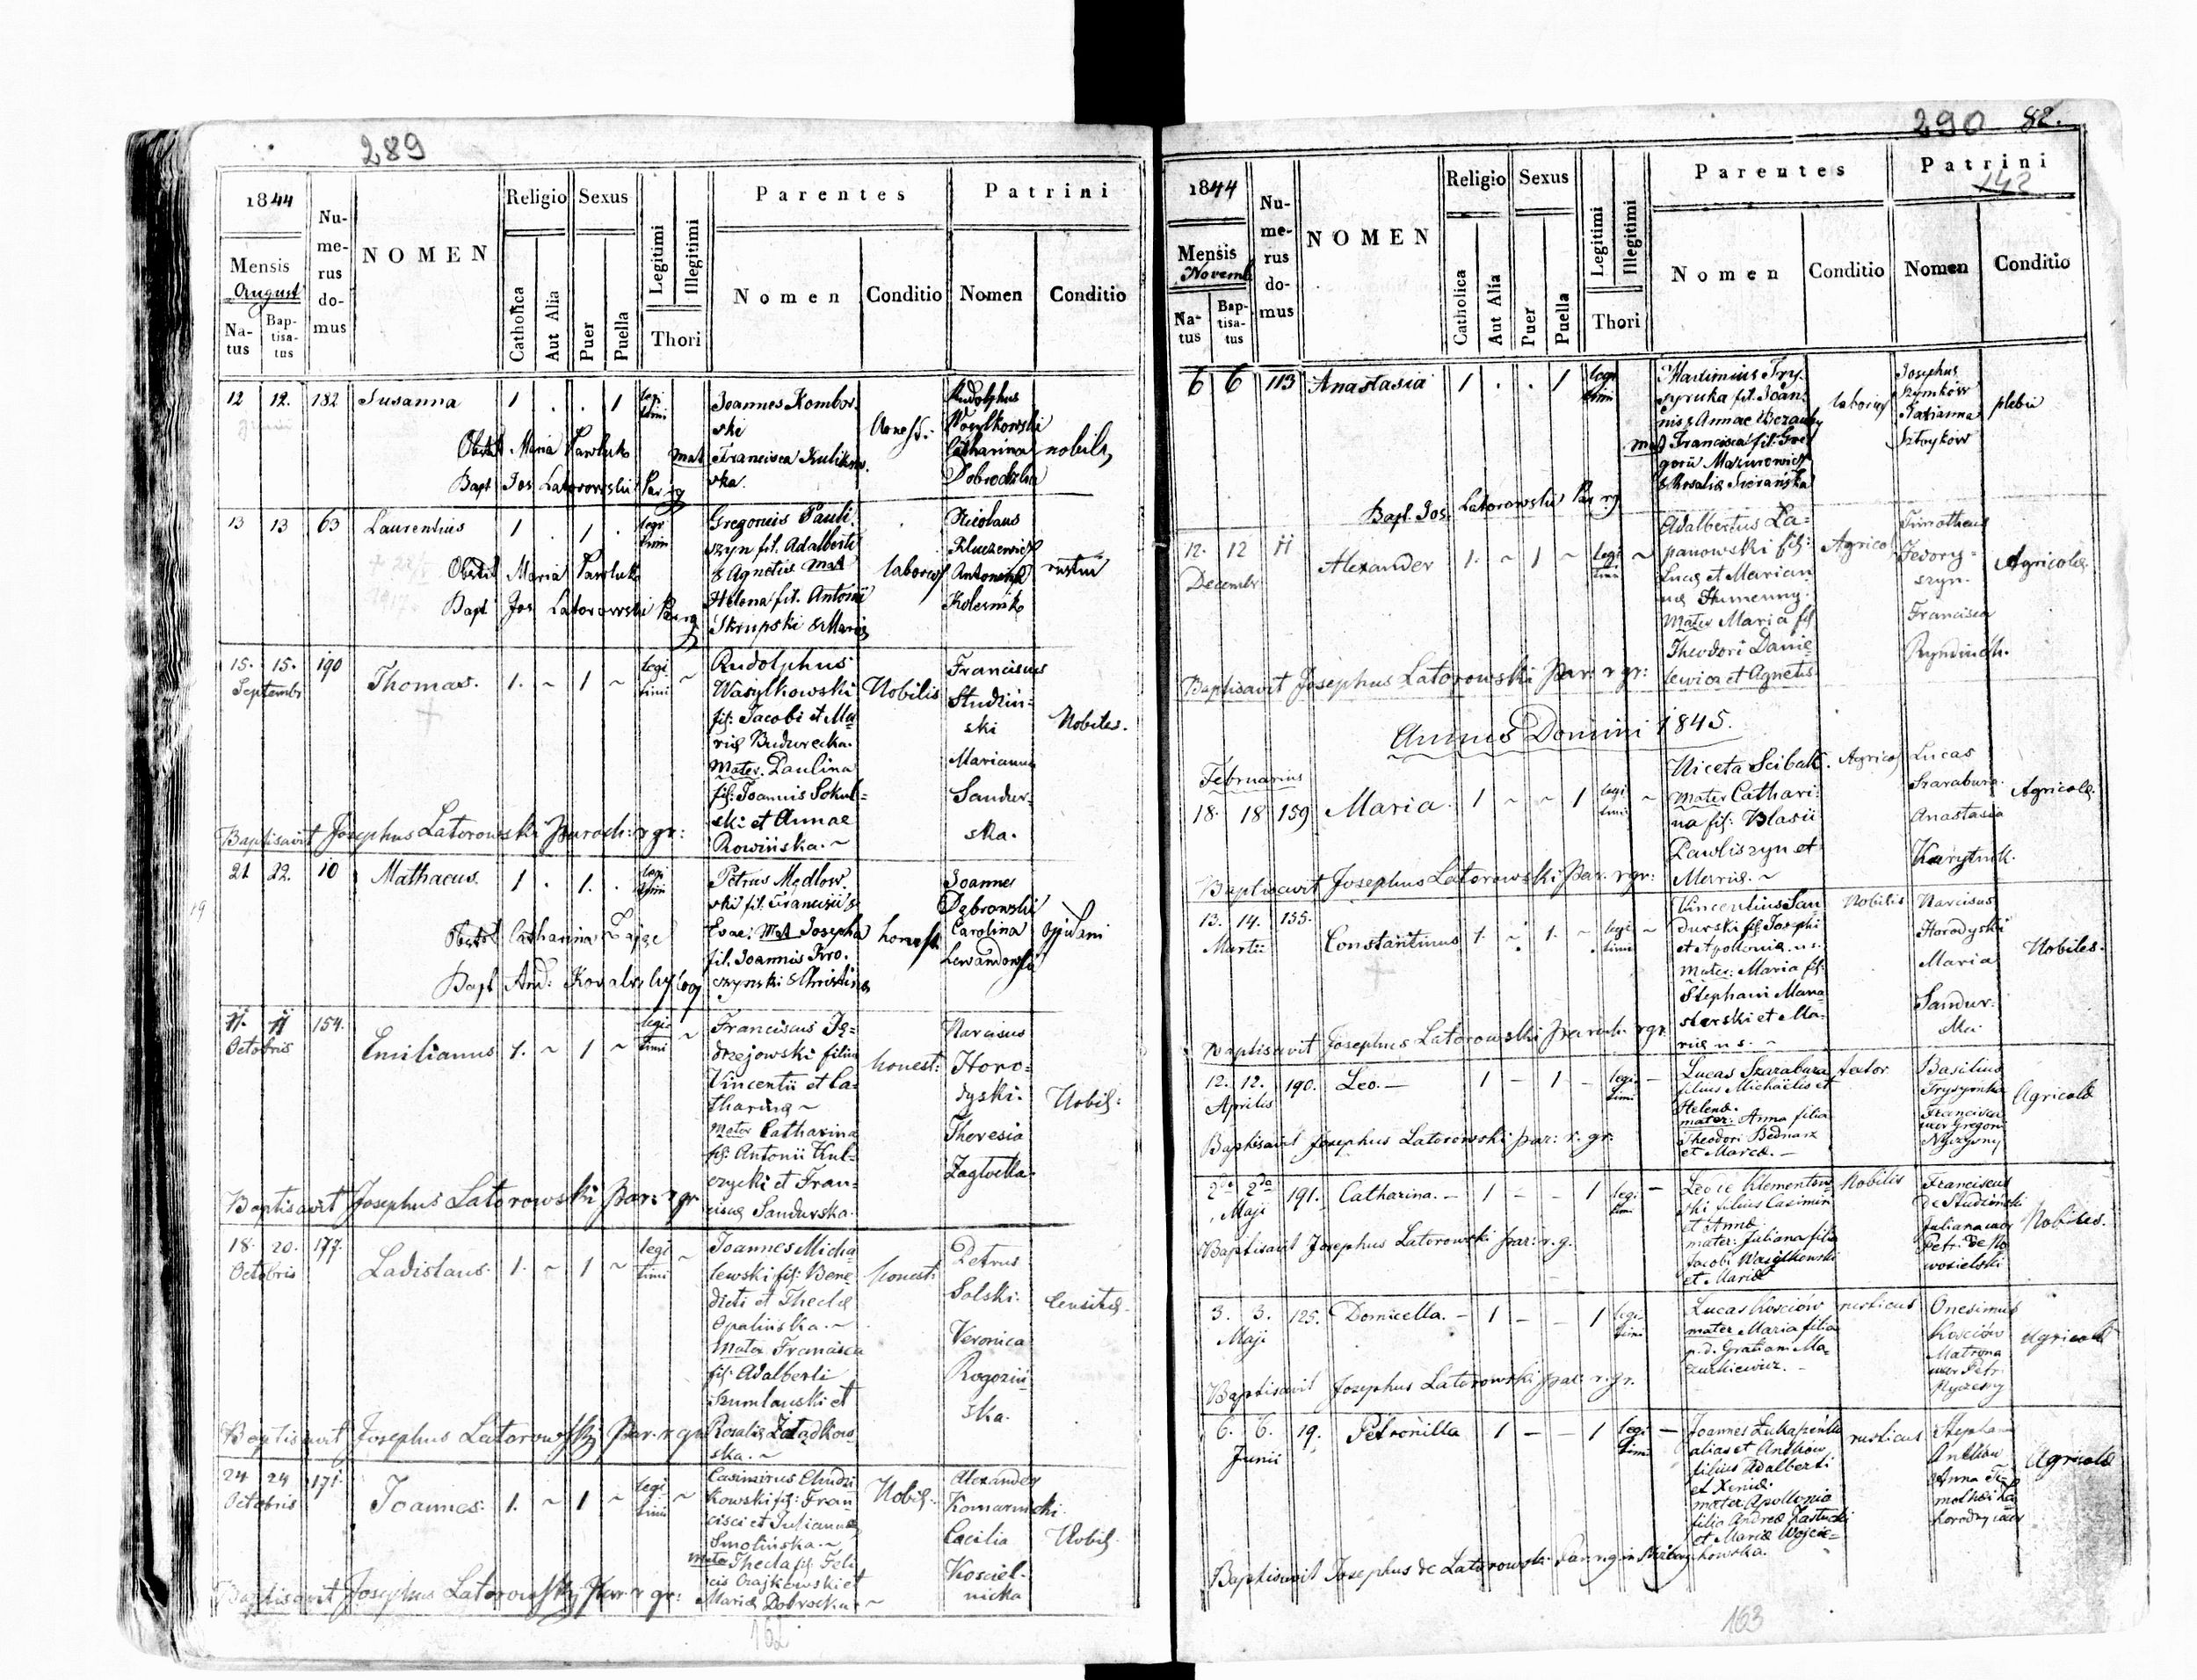 289
1844
Mensis
August
Na-
tus
Bap-
tisa-
tus
Nu-
me-
rus
do-
mus
NOMEN
Religio
Catholica
Aut Alia
Sexus
Puer
Puella
Legitimi
Illegitimi
Thori
Parentes
Nomen
Conditio
Patrini
Nomen
Conditio
12 12. 182 Susanna 1 . . 1 legi
timi
Joannes Kombor
ski
mat Francisca Kulikow
ska.
Rudolphus
Wasylkowski
Catharina
nobiles
Obstet. Maria Pawluk
Bapt Jos Latorowski Par rg
13 13 63 Laurentius 1 . 1 . legi
timi
Gregorius Pauli
szyn fil. Adalberti
& Agnetis mat
Helena fil. Antonii
Skrupski & Maria
labor
Nicolaus
Kluczewicz
Antonina
Kolesnik
Obstet Maria Pawluk
Bapt Jos Latorowski Par rg
15. 15. 190 Thomas. 1. ~ 1 ~ legi
timi ~
Septembr
Rudolphus
Wasylkowski
fil: Jacobi et Ma
riæ Budurecka.
Mater. Paulina
fil: Joannis Sokul=
ski et Annae
Rowińska. ~
Nobilis
Franciscus
Studziń=
ski
Marianna
Sandur=
ska.
Nobiles.
Baptisavit Josephus Latorowski Paroch: r gr:
21 22. 10 Mathaeus. 1 . 1. . legi
timi
Petrus Mędlow
ski fil. Francisci &
Evae: Mat Josepha
fil. Joannis Kro
czynski & Christina
honest
Joannes
Dębrowski
Carolina
Lewandowska
Oppidani
Obstet Catharina
Bapt And: Kovalski
11. 11 154. Emilianus 1. ~ 1 ~ legi
timi ~
Octobris
Franciscus Ję=
drzejowski filius
Vincentii et Ca=
tharinæ ~
Mater Catharina
fil: Antonii Kul=
czycki et Fran=
ciscæ Sandurska.
honest:
Narcisus
Horo=
dyski.
Theresia
Zagwolla.
Nobil:
Baptisavit Josephus Latorowski Par: r gr
18. 20. 177. Ladislaus. 1. ~ 1 ~ legi
timi ~
Octobris
Joannes Micha
lewski fil: Bene
dicti et Theclæ
Opalińska. ~
Mater Francisca
fil: Adalberti
Szumlanski et
Rosaliæ
ska. ~
honest:
Petrus
Solski.
Veronica
Rogoziń
ska.
Baptisavit Josephus Latorowskj Par. r gr
24 24 171. Joannes. 1. ~ 1 ~ legi
timi ~
Octobris
Casimirus Chudzi
kowski fil: Fran
cisci et Julianna
Smolińska. ~
Mater Thecla fil: Feli
cis Czajkowski et
Mariæ Dobrocka. ~
Nobil.
Alexander
Komarnicki.
Cæcilia
Kosciel=
nicka
Nobil.
Baptisavit Josephus Latorowskj Par r gr:
162
290 82.
142
1844
Mensis
Novemb
Na-
tus
Bap-
tisa-
tus
Nu-
me-
rus
do-
mus
NOMEN
Religio
Catholica
Aut Alia
Sexus
Puer
Puella
Legitimi
Illegitimi
Thori
Parentes
Nomen
Conditio
Patrini
Nomen
Conditio
6 6 113 Anastasia 1 . . 1 legi
timi
Maximius Try
szpruka fil. Joan
nis & Annae
mat Francisca fil. Gre
gorii Mazurowicz
& Rosaliæ
Josephus
Szymków
Marianna
plebei
Bapt. Jos. Latorowski Par rg
12. 12 11 Alexander 1. ~ 1 ~ legi
timi ~
Decembr
Adalbertus Ła=
panowski fil:
Lucæ et Marian
næ Humenny.
Mater Maria fil
Theodori Danie
lewicz et Agnetis
Agricol
Timotheus
Fedory=
szyn.
Francisca
Agricolæ
Baptisavit Josephus Latorowski Par: r gr:
Annus Domini 1845.
Februarius
18. 18 159 Maria. 1 ~ ~ 1 legi
timi ~
Niceta Scibak.
Mater Cathari=
na fil: Blasii
Pawliszyn et
Mariæ. ~
Agricol
Lucas
Skarabura.
Anastasia
Karytnik.
Agricolæ.
Baptisavit Josephus Latorowski Par. r gr:
13. 14. 155. Constantinus 1. ~ 1. ~ legi
timi ~
Martii
Vincentius San
durski fil: Josephi
et Apolloniæ n.s.
Mater: Maria fil:
Stephani Mana
sterski et Ma=
riæ n.s. ~
Nobilis
Narcisus
Horodyski
Maria
Sandur=
ska.
Nobiles.
Baptisavit Josephus Latorowski Paroch. r gr.
12. 12. 190. Leo. — 1 – 1 – legi
timi –
Aprilis
Lucas Skarabura
filius Michaëlis et
Helenæ.
mater: Anna filia
Theodori Bednarz
et Mariæ. —
Basilius
Tryszpruka
Francisca
uxor Gregorii
Nyczyowy
Agricolæ
Baptisavit Josephus Latorowski par: r. gr.
2da 2da 191. Catharina. – 1 – – 1 legi
timi –
Maji
Klementow
ski filius Casimiri
et Annæ
mater: Juliana filia
Jacobi Wasylkowski
et Mariæ
Nobilis
Franciscus
de Studziński
Juliana uxor
Petri de No
wosielski
Nobiles.
Baptisavit Josephus Latorowski par: r. g.
3. 3. 125. Domicella. – 1 – – 1 legi
timi
Maji
Lucas Kosciów
mater Maria filia
p.d. Gratiani Ma=
zurkiewicz. –
rusticus
Onesimus
Kosciów
Matrona
uxor Petri
Agricolæ
Baptisavit Josephus Latorowski par: r. gr.
6. 6. 19. Petronilla 1 – – 1 legi
timi –
Junii
Joannes
alias et Andków
filius Adalberti
et Xeniæ
mater Apollonia
filia Andreæ
et Mariæ Wojcie=
chowska.
rusticus
Stephan
Anna
Agricolæ
Baptisavit Josephus de Latorowski Par. r. g. in
163